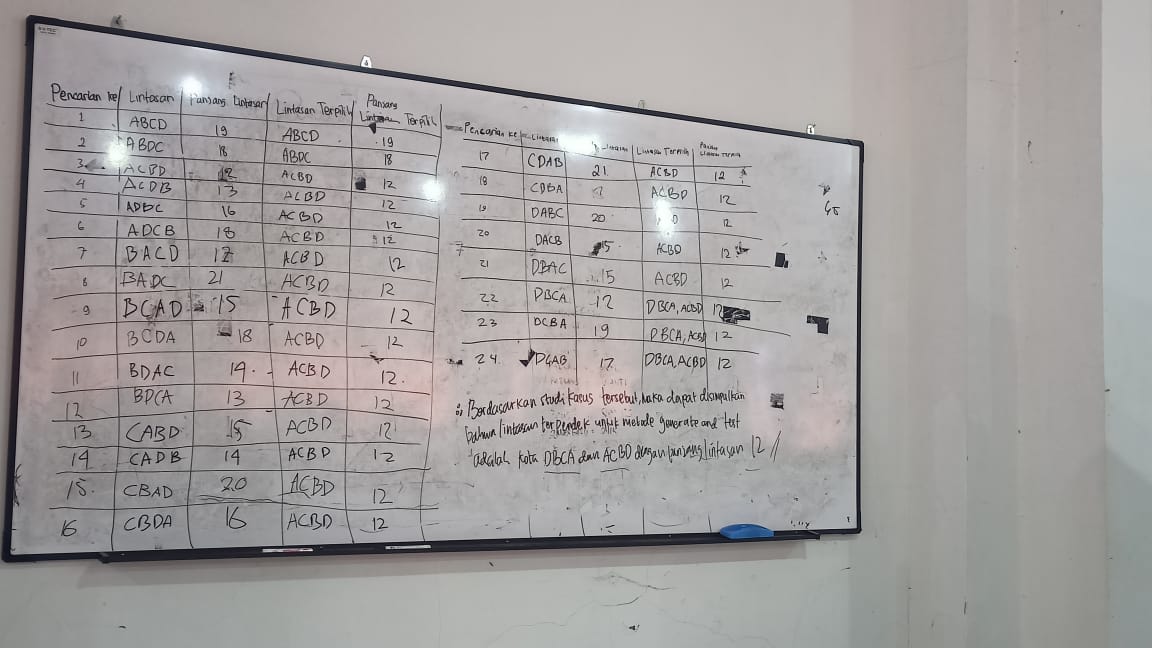 Pencarian ke Lintasan Panjang Lintasan Lintasan Terpilih Panjang Lintasan Terpilih
1 ABCD 19 ABCD 19
2 ABDC 18 ABDC 18
3 ACBD 12 ACBD 12
4 ACDB 13 ACBD 12
5 ADBC 16 ACBD 12
6 ADCB 18 ACBD 12
7 BACD 17 ACBD 12
8 BADC 21 ACBD 12
9 BCAD 15 ACBD 12
10 BCDA 18 ACBD 12
11 BDAC 14 ACBD 12
12 BDCA 13 ACBD 12
13 CABD 15 ACBD 12
14 CADB 14 ACBD 12
15. CBAD 20 ACBD 12
16 CBDA 16 ACBD 12
Pencarian ke Lintasan Lintasan Lintasan Terpilih Lintasan
17 CDAB 21 ACBD 12
18 CDBA ACBD 12
19 DABC 20 12
20 DACB 15 ACBD 12
21 DBAC 15 ACBD 12
22 DBCA 12 DBCA, ACBD 12
23 DCBA 19 DBCA, ACBD 12
24. DCAB 17 DBCA, ACBD 12
Berdasarkan studi kasus tersebut, maka dapat disimpulkan
bahwa lintasan terpendek untuk metode generate and test
adalah kota DBCA dan ACBD dengan panjang lintasan 12 //